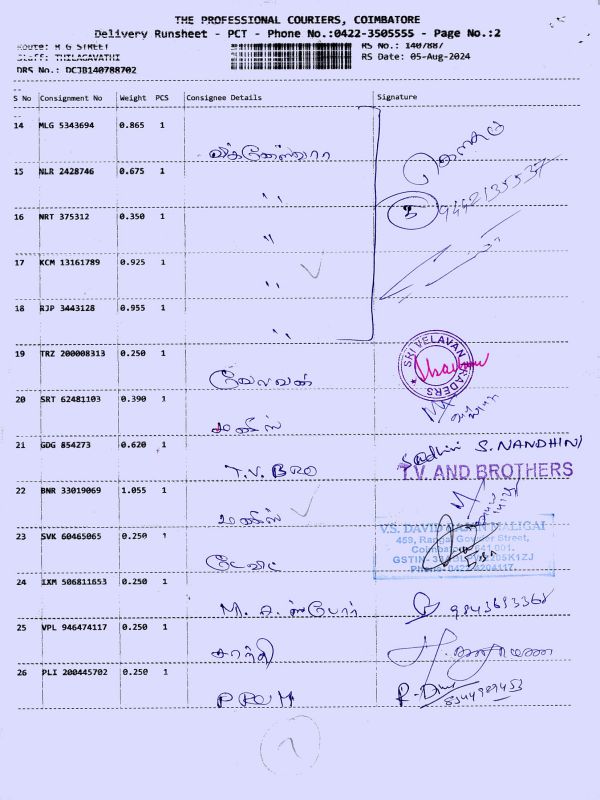 THE PROFESSIONAL COURIERS, COIMBATORE
Delivery Runsheet - PCT - Phone No.:0422-3505555 - Page No.:2
Route: M G STREET
RS No.: 1407887
Staff: THILAGAVATHI
RS Date: 05-Aug-2024
DRS No.: DCJB140788702
S No Consignment No Weight PCS Consignee Details Signature
14 MLG 5343694 0.865 1
15 NLR 2428746 0.675 1 ,,
9442135537
3
16 NRT 375312 0.350 1 ,,
17 KCM 13161789 0.925 1 ,,
18 RJP 3443128 0.955 1 ,,
19 TRZ 200008313 0.250 1 வேலவன்
SRI VELAVAN TRADERS
20 SRT 62481103 0.390 1
21 GDG 854273 0.620 1 T.V. BRO
S. NANDHINI
T.V. AND BROTHERS
22 BNR 33019069 1.055 1
23 SVK 60465065 0.250 1 டேவிட்
V.S. DAVID NADAN MALIGAI
459, Rangai Gowder Street,
24 IXM 506811653 0.250 1
25 VPL 946474117 0.250 1 சாந்தி
26 PLI 200445702 0.250 1
7